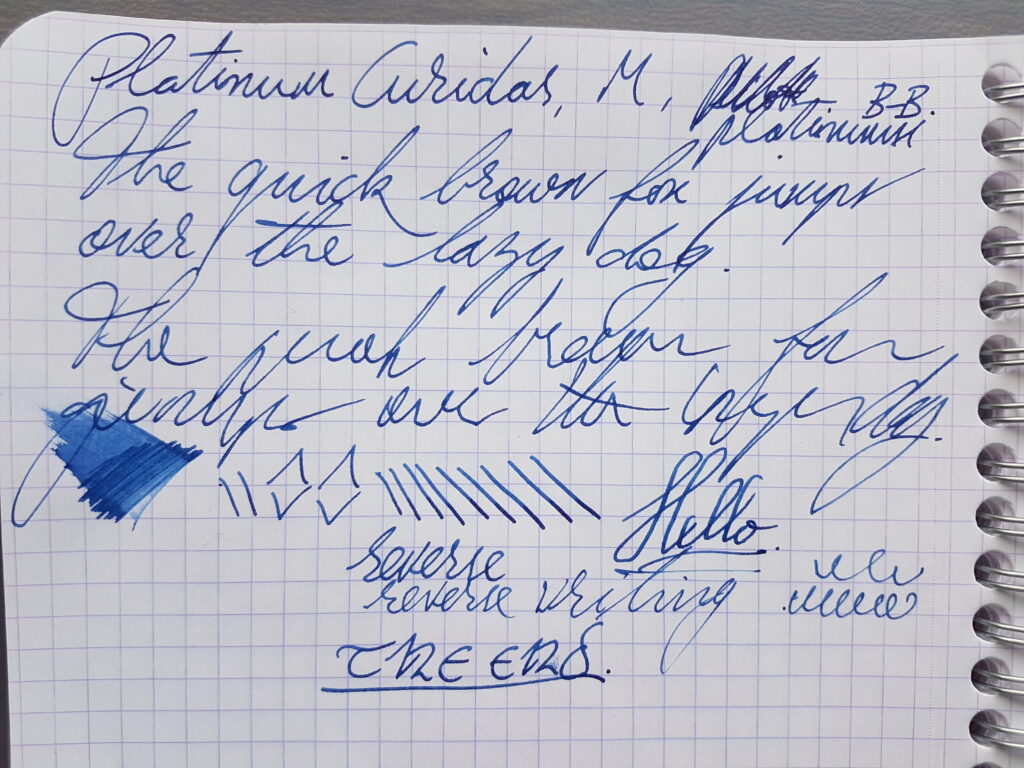 Platinum Curidas, M, B-B.
platinum
The quick brown fox jumps
over the lazy dog.
The quick brown fox
jumps over the lazy dog.
Hello.
reverse
reverse writing